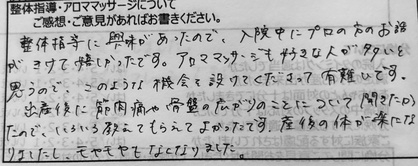 整体指導・アロママッサージについて
ご感想・ご意見があればお書きください。
整体指導に興味があったので、入院中にプロの方のお話
がきけて嬉しかったです。アロママッサージも好きな人が多いと
思うので、このような機会を設けてくださって有難いです。
出産後に筋肉痛や骨盤の広がりのことについて聞きたかっ
たので、いろいろ教えてもらえてよかったです。産後の体が楽にな
りましたし、モヤモヤもなくなりました。